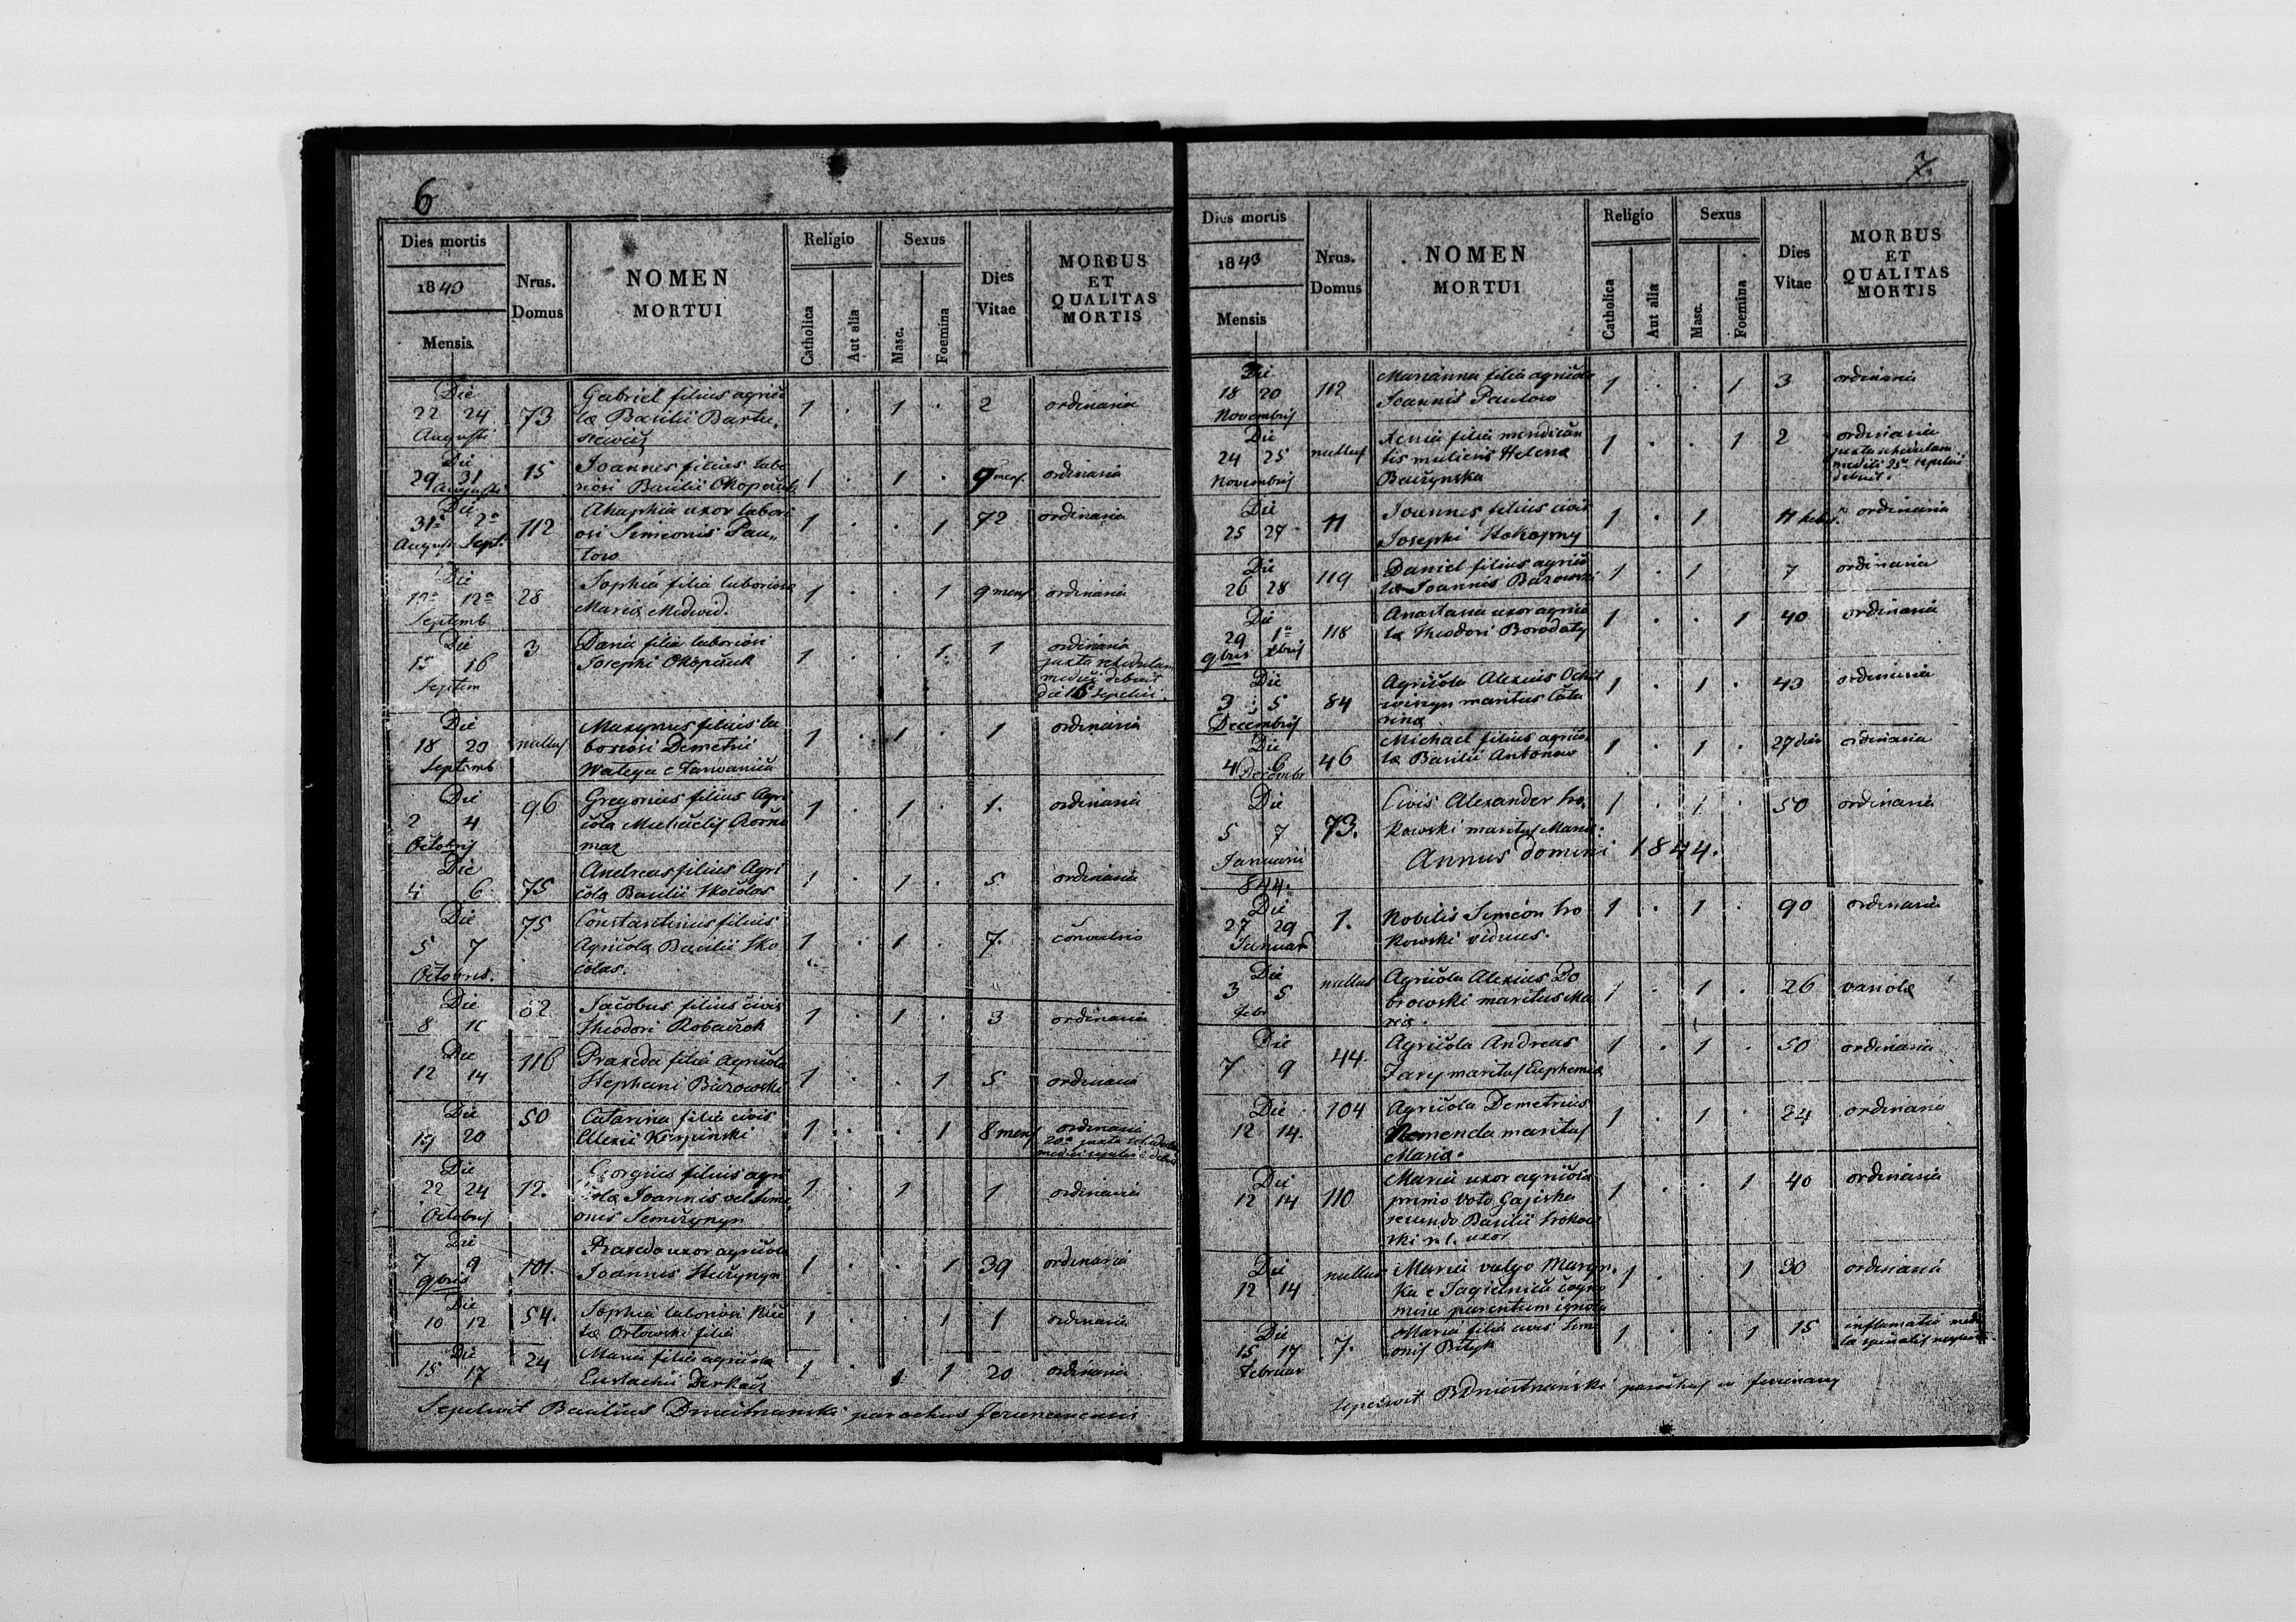 6
Dies mortis
1843
Mensis
Nrus. Domus
NOMEN MORTUI
Religio
Catholica
Aut alia
Sexus
Masc.
Foemina
Dies Vitae
MORBUS ET QUALITAS MORTIS
Die 22 24 Augusti 73 Gabriel filius agrico
læ Basilii Bartu
1 . 1 . 2 ordinaria
Die 29 31 Augusti 15 Joannes filius labo
riosi Basilii Okopczuk
1 . 1 . 9 mens. ordinaria
Die 31a 2a August Sept. 112 Ahaphia uxor labori
osi Simeonis Paw
low
1 . . 1 72 ordinaria
Die 12a Septemb 28 Sophia filia laboriosæ
Mariæ Medwid.
1 . . 1 9 mens ordinaria
Die 15 16 Septem 3 Daria filia laboriosi
Josephi Okopczuk
1 . . 1 1 ordinaria
juxta schedulam
medici debuit
die 16 sepeliri.
Die 18 20 Septemb nullus Maxymus filius la
boriosi Demetrii
1 . 1 . 1 ordinaria
Die 2 4 Octobris 96 Gregorius filius Agri
colæ Michaelis
1 . 1 . 1. ordinaria
Die 4 6 75 Andreas filius Agri
colæ Basilii Skočolas
1 . 1 . 5 ordinaria
Die 5 7 Octobris. 75 Constantinus filius
Agricolæ Basilii Sko
čolas.
1 . 1 . 7. convulsio
Die 8 52 Jacobus filius civis
Theodori Robaczok
1 . 1 . 3 ordinaria
Die 12 14 116 Praxeda filia Agricolæ
Stephani Burowski
1 . . 1 5 ordinaria
Die 19 20 50 Catarina filia civis
Alexii Karpinski
1 . . 1 8 mens ordinaria
20a juxta schedulam
medici sepeliri debuit
Die 22 24 Octobris 12. Georgius filius agri
colæ Joannis vel Sime
onis Semczyszyn
1 . 1 1 ordinaria
Die 7 9 9bris 101. Praxeda uxor agricolæ
Joannis
1 . . 1 39 ordinaria
Die 10 12 54. Sophia laboriosi Nice
tæ Orlowski filia
1 . . 1 1 ordinaria
Die 15 17 24 Maria filia agricolæ
Eustachii Derkacz
1 . 1 20 ordinaria
Sepelivit Basilius Dniestrzanski parochus
7.
Dies mortis
1843
Mensis
Nrus. Domus
NOMEN MORTUI
Religio
Catholica
Aut alia
Sexus
Masc.
Foemina
Dies Vitae
MORBUS ET QUALITAS MORTIS
Die 18 20 Novembris 112 Marianna filia agricolæ
Joannis Pawlow
1 . . 1 3 ordinaria
Die 24 25 Novembris nullus Xenia filia mendican
tis mulieris Helenæ
Baczynska
1 . . 1 2 ordinaria
juxta schedulam
medici 25a sepeliri
debuit.
Die 25 27 11 Joannes filius civis
Josephi
1 . 1 11 ordinaria
Die 26 28 119 Daniel filius agrico
læ Joannis Burowski
1 . 1 7 ordinaria
Die 29 1a 9bris Xbris 118 Anastasia uxor agrico
læ Theodori Borodaty
1 . . 1 40 ordinaria
Die 3 5 Decembris 84 Agricola Alexius
maritus Cata
rinæ
1 . 1 . 43 ordinaria
Die 4 6 Decembr 46 Michael filius agrico
læ Basilii Antonow
1 . 1 . 27 dies ordinaria
Die 5 7 Januarii 844. 73. Civis Alexander Sro
kowski maritus Mariæ.
1 . 1 . 50 ordinaria
Annus Domini 1844.
Die 27 29 Januar 1. Nobilis Simeon Sro
kowski viduus.
1 . 1 . 90 ordinaria
Die 3 5 Febr nullus Agricola Alexius Do
browski maritus Ma
riæ.
1 . 1 . 26 variolæ
Die 7 9 44 Agricola Andreas
Zaryj maritus Euphemiæ
1 . 1 . 50 ordinaria
Die 12 14. 104 Agricola Demetrius
maritus
Mariæ.
1 . 1 . 24 ordinaria
Die 12 14 110 Maria uxor agricolæ
primo voto Gajeska
secundo Basilii Srokow
ski uxor
1 . . 1 40 ordinaria
Die 12 14 nullus Maria vulgo Maryn
ka e Jagielnica cogno
mine parentum ignota
1 . . 1 30 ordinaria
Die 15 17 Februar 7. Maria filia civis Sime
onis Bilyk
1 1 15 inflamatio medul
læ spinalis
Sepelivit BDniestrzański parochus